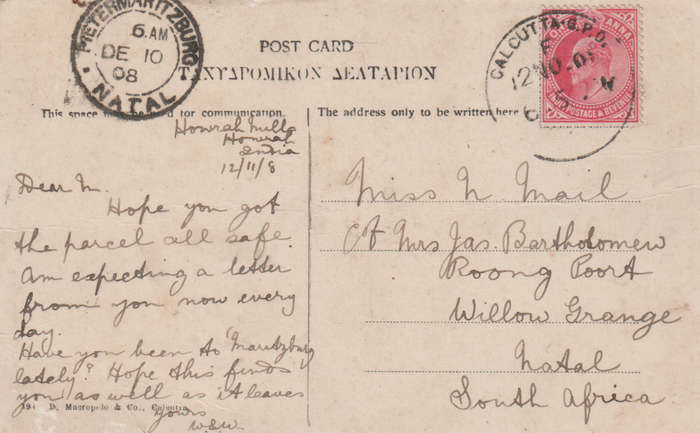 PIETERMARITZBURG
6.AM
DE 10
08
NATAL
POST CARD
ΤΑΧΥΔΡΟΜΙΚΟΝ ΔΕΛΤΑΡΙΟΝ
CALCUTTA.G.P.O.
12NO.08
ONE ANNA
INDIA POSTAGE & REVENUE
This space for communication.
The address only to be written here
Howrah Mills
Howrah
India
12/11/8
Dear M.
Hope you got
the parcel all safe.
Am expecting a letter
from you now every
day.
Have you been to 'Maritzburg
lately? Hope this finds
you as well as it leaves
yours
W&W.
Miss N. Mail
c/o Mrs Jas. Bartholomew
Roong Poort
Willow Grange
Natal
South Africa
D. Macropolo & Co., Calcutta